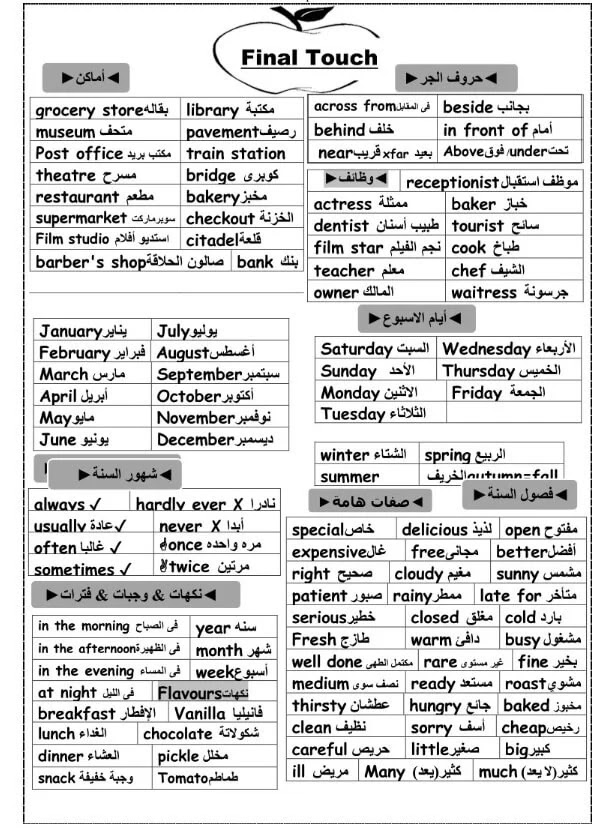 Final Touch
أماكن
grocery store بقاله library مكتبة
museum متحف pavement رصيف
Post office مكتب بريد train station
theatre مسرح bridge كوبرى
restaurant مطعم bakery مخبز
supermarket سوبرماركت checkout الخزنة
Film studio استديو أفلام citadel قلعة
barber's shop صالون الحلاقة bank بنك
حروف الجر
across from فى المقابل beside بجانب
behind خلف in front of أمام
near قريب xfar بعيد Above فوق/under تحت
وظائف receptionist موظف استقبال
actress ممثلة baker خباز
dentist طبيب أسنان tourist سائح
film star نجم الفيلم cook طباخ
teacher معلم chef الشيف
owner المالك waitress جرسونة
January يناير July يوليو
February فبراير August أغسطس
March مارس September سبتمبر
April أبريل October أكتوبر
May مايو November نوفمبر
June يونيو December ديسمبر
أيام الاسبوع
Saturday السبت Wednesday الأربعاء
Sunday الأحد Thursday الخميس
Monday الاثنين Friday الجمعة
Tuesday الثلاثاء
winter الشتاء spring الربيع
summer autumn=fall الخريف
شهور السنة
always ✓ hardly ever X نادرا
usually عادة ✓ never X أبدا
often غالبا ✓ once مره واحده
sometimes ✓ twice مرتين
نكهات & وجبات & فترات
in the morning فى الصباح year سنه
in the afternoon فى الظهيرة month شهر
in the evening فى المساء week أسبوع
at night فى الليل Flavours نكهات
breakfast الإفطار Vanilla فانيليا
lunch الغداء chocolate شكولاتة
dinner العشاء pickle مخلل
snack وجبة خفيفة Tomato طماطم
فصول السنة
صفات هامة
special خاص delicious لذيذ open مفتوح
expensive غال free مجانى better أفضل
right صحيح cloudy مغيم sunny مشمس
patient صبور rainy ممطر late for متأخر
serious خطير closed مغلق cold بارد
Fresh طازج warm دافئ busy مشغول
well done مكتمل الطهى rare غير مستوى fine بخير
medium نصف سوى ready مستعد roast مشوي
thirsty عطشان hungry جائع baked مخبوز
clean نظيف sorry أسف cheap رخيص
careful حريص little صغير big كبير
ill مريض Many كثير(يعد) much كثير(لا يعد)